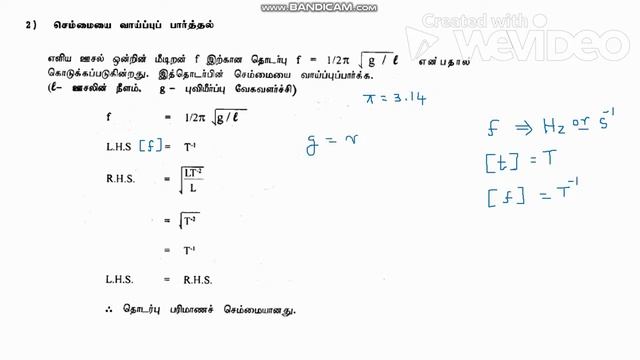 www.BANDICAM.com
Created with
WeVideo
2) செம்மையை வாய்ப்புப் பார்த்தல்
எளிய ஊசல் ஒன்றின் மீடிறன் f இற்கான தொடர்பு f = 1/2π √g / ℓ என்பதால்
கொடுக்கப்படுகின்றது. இத்தொடர்பின் செம்மையை வாய்ப்புப்பார்க்க.
(ℓ- ஊசலின் நீளம். g - புவியீர்ப்பு வேகவளர்ச்சி)
π = 3.14
f = 1/2π √g/ℓ
f ⇒ Hz or s⁻¹
L.H.S [f] = T⁻¹
g = v
[t] = T
R.H.S. = √LT⁻²/L
[f] = T⁻¹
= √T⁻²
= T⁻¹
L.H.S. = R.H.S.
∴ தொடர்பு பரிமாணச் செம்மையானது.